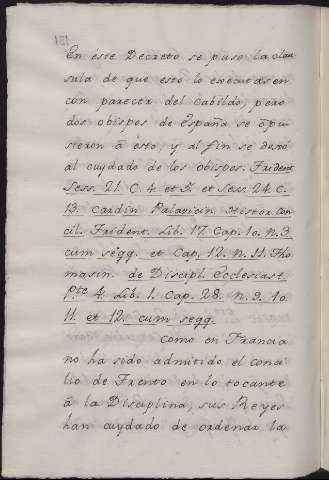 131
En este Decreto se puso la clau
sula de que esto lo executasen
con parecer del Cabildo, pero
dos obispos de España se opu
sieron à esto, y al fin se dexó
al cuydado de los obispos. Trident.
Sess. 21. C. 4. et 5. et Sess. 24. C.
13. Cardin Palavicin. Histor. Con
cil. Trident. Lib. 17. Cap. 10. n. 3.
cum seqq. et Cap. 12. n. 11. Tho
masin. de Discipl. Ecclesiast.
Pte. 4. Lib. 1. Cap. 28. n. 9. 10.
11. et 12. cum seqq.
Como en Francia
no ha sido admitido el conci
lio de Trento en lo tocante
à la Disciplina, sus Reyes
han cuydado de ordenar la